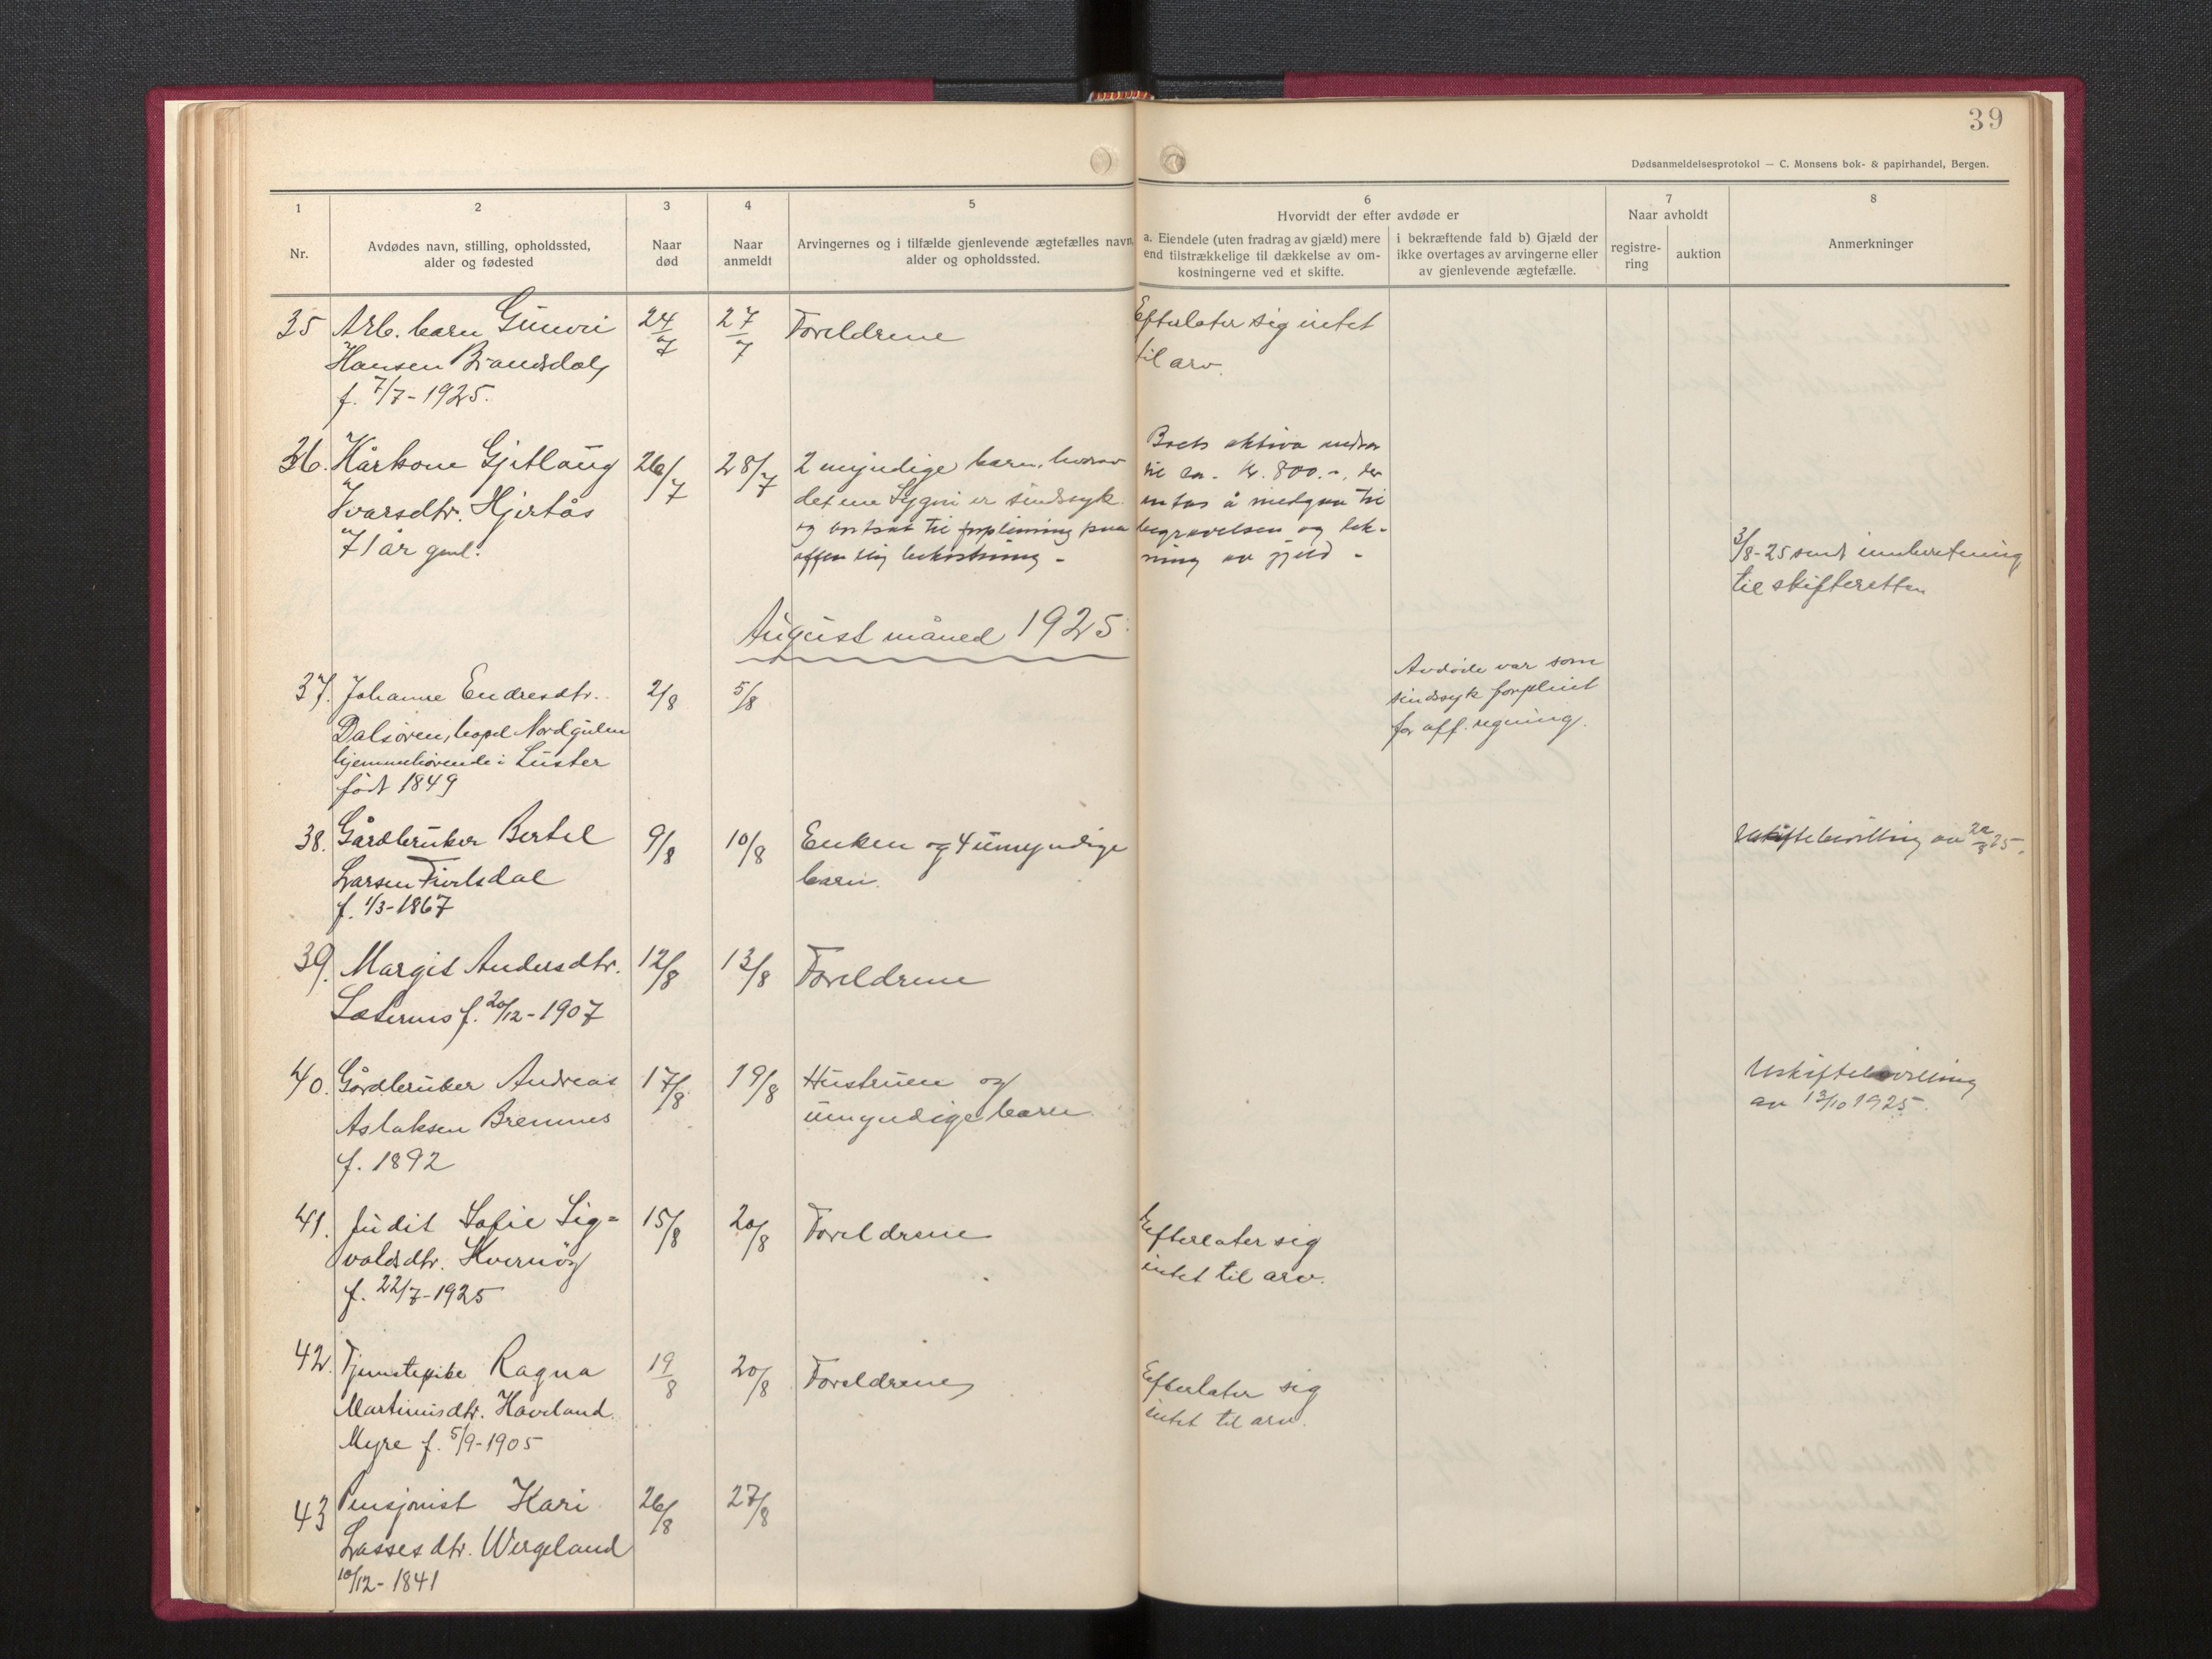 39
Dødsanmeldelsesprotokol — C. Monsens bok- & papirhandel, Bergen.
1
Nr.
2
Avdødes navn, stilling, opholdssted,
alder og fødested
3
Naar
død
4
Naar
anmeldt
5
Arvingernes og i tilfælde gjenlevende ægtefælles navn
alder og opholdssted.
6
Hvorvidt der efter avdøde er
a. Eiendele (uten fradrag av gjæld) mere
end tilstrækkelige til dækkelse av om-
kostningerne ved et skifte.
i bekræftende fald b) Gjæld der
ikke overtages av arvingerne eller
av gjenlevende ægtefælle.
7
Naar avholdt
registre-
ring
auktion
8
Anmerkninger
35 Arb. barn Gunvri 24/7 27/7 Foreldrene Efterlater sig intet
Hansen Brandsdal, til arv.
f. 7/7-1925.
36. Kårkone Gjitlaug 26/7 28/7 2 myndige barn, hvorav Boets aktiva andrar
Ivarsdtr. Hjertås det ene Sygni er sindssyk til ca. kr. 800.-, der
71 år gml. og bortsat til forpleining paa antas å medgaa til
offentlig bekostning - begravelsen og dek-
ning av gjeld -
3/8-25 sendt innberetning
til skifteretten
August måned 1925.
37. Johanne Endresdtr. 2/8 5/8 Avdøde var som
Dalsøren, bopel Nordgulen sindssyk forpleiet
hjemmehørende i Luster for off. regning.
født 1849
38. Gårdbruker Bertel 9/8 10/8 Enken og 4 umyndige Uskiftebevilling av 22/8 25.
Larsen Fivelsdal barn.
f. 1/3-1867
39. Margit Andersdtr. 12/8 13/8 Foreldrene
Sæternes f. 20/12-1907
40. Gårdbruker Andreas 17/8 19/8 Hustruen og Uskiftebevilling
Aslaksen Bremnes umyndige barn av 13/10 1925.
f. 1892
41. Judit Sofie Sig= 15/8 20/8 Foreldrene Efterlater sig
valdsdtr. Kvernøy intet til arv.
f. 22/7-1925
42. Tjenestepike Ragna 19/8 20/8 Foreldrene Efterlater sig
Martinusdtr. Haveland intet til arv.
Myre f. 5/9-1905
43 Pensjonist Kari 26/8 27/8
Lassesdtr. Wergeland
10/12-1841